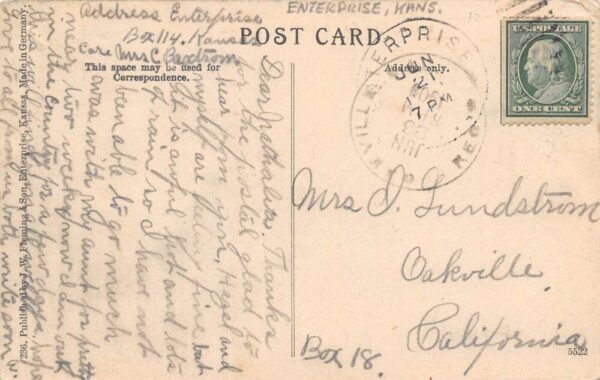 Address Enterprise
Box 114. Kansas
Care Mrs C Baxtrom
ENTERPRISE, KANS.
POST CARD
This space may be used for
Correspondence.
Address only.
U.S. POSTAGE
ONE CENT
ENTERPRIS
JUN
21
7 PM
JUN
Dear Nathalia. Thanks
for the postal glad to
hear from you, Hazel and
myself are feeling fine but
it is awful hot and lots
of rain so I have not
been able to go much
was with my aunt for pretty
near two weeks now I am out
in the country for a few days
this world
Love to all from us both write soon
Mrs J. Lundstrom
Oakville
California
Box 18.
5522
236. Published by J. W. Fleming & Son, Enterprise, Kansas. Made in Germany.